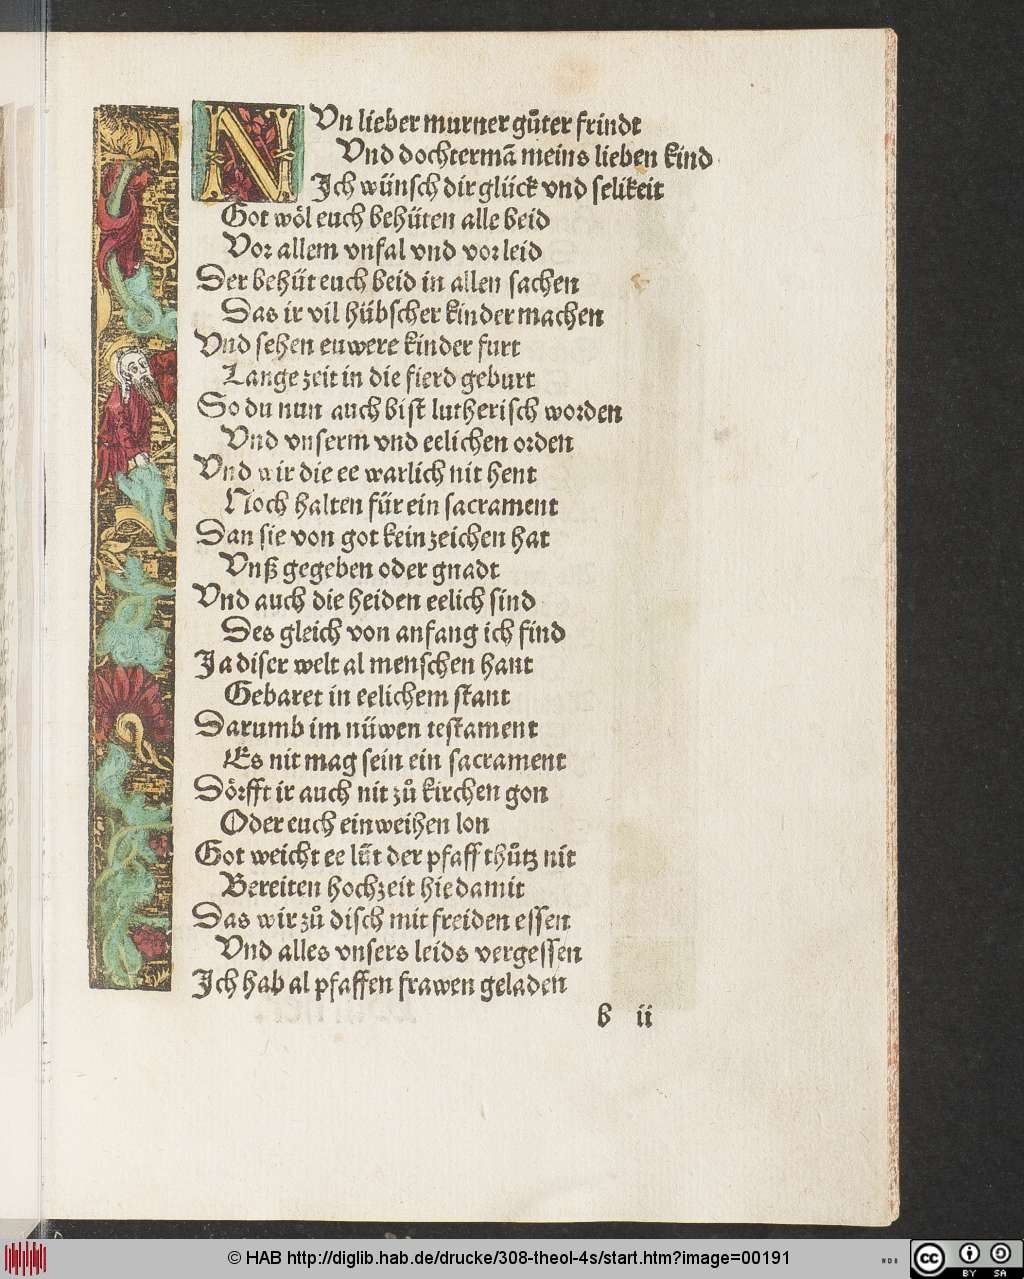 NVn lieber murner gůter frindt
Vnd dochtermã meins lieben kind
Ich wünsch dir glück vnd selikeit
Got wöl euch behüten alle beid
Vor allem vnfal vnd vor leid
Der behüt euch beid in allen sachen
Das ir vil hübscher kinder machen
Vnd sehen euwere kinder furt
Lange zeit in die fierd geburt
So du nun auch bist lutherisch worden
Vnd vnserm vnd eelichen orden
Vnd wir die ee warlich nit hent
Noch halten für ein sacrament
Dan sie von got kein zeichen hat
Vnß gegeben oder gnadt
Vnd auch die heiden eelich sind
Des gleich von anfang ich find
Ja diser welt al menschen hant
Gebaret in eelichem stant
Darumb im nüwen testament
Es nit mag sein ein sacrament
Dörfft ir auch nit zů kirchen gon
Oder euch einweihen lon
Got weicht ee lüt der pfaff thůtz nit
Bereiten hochzeit hie damit
Das wir zů disch mit freiden essen
Vnd alles vnsers leids vergessen
Ich hab al pfaffen frawen geladen
b ii
© HAB http://diglib.hab.de/drucke/308-theol-4s/start.htm?image=00191
WDB
cc BY SA